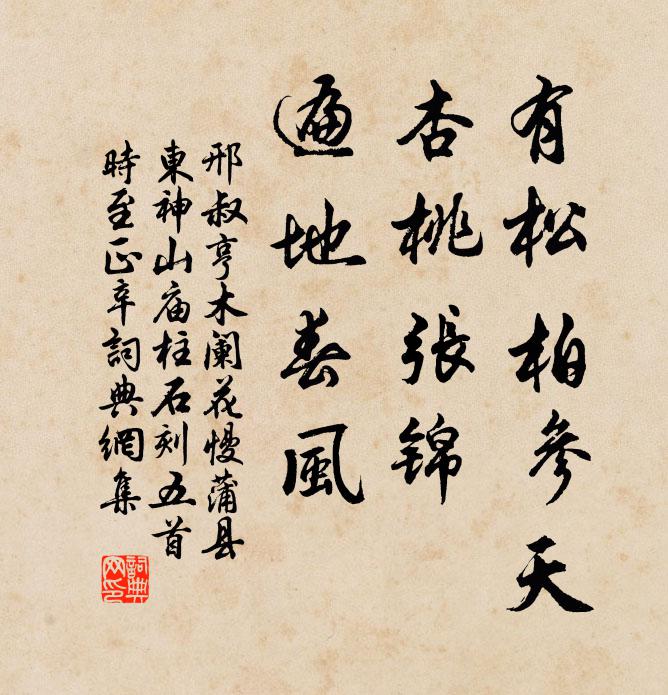 有松柏參天
杏桃張錦
遍地春風
邢叔亨木闌花慢蒲县
東神山庙柱石刻五首
時至正辛詞典網集
詞典网印